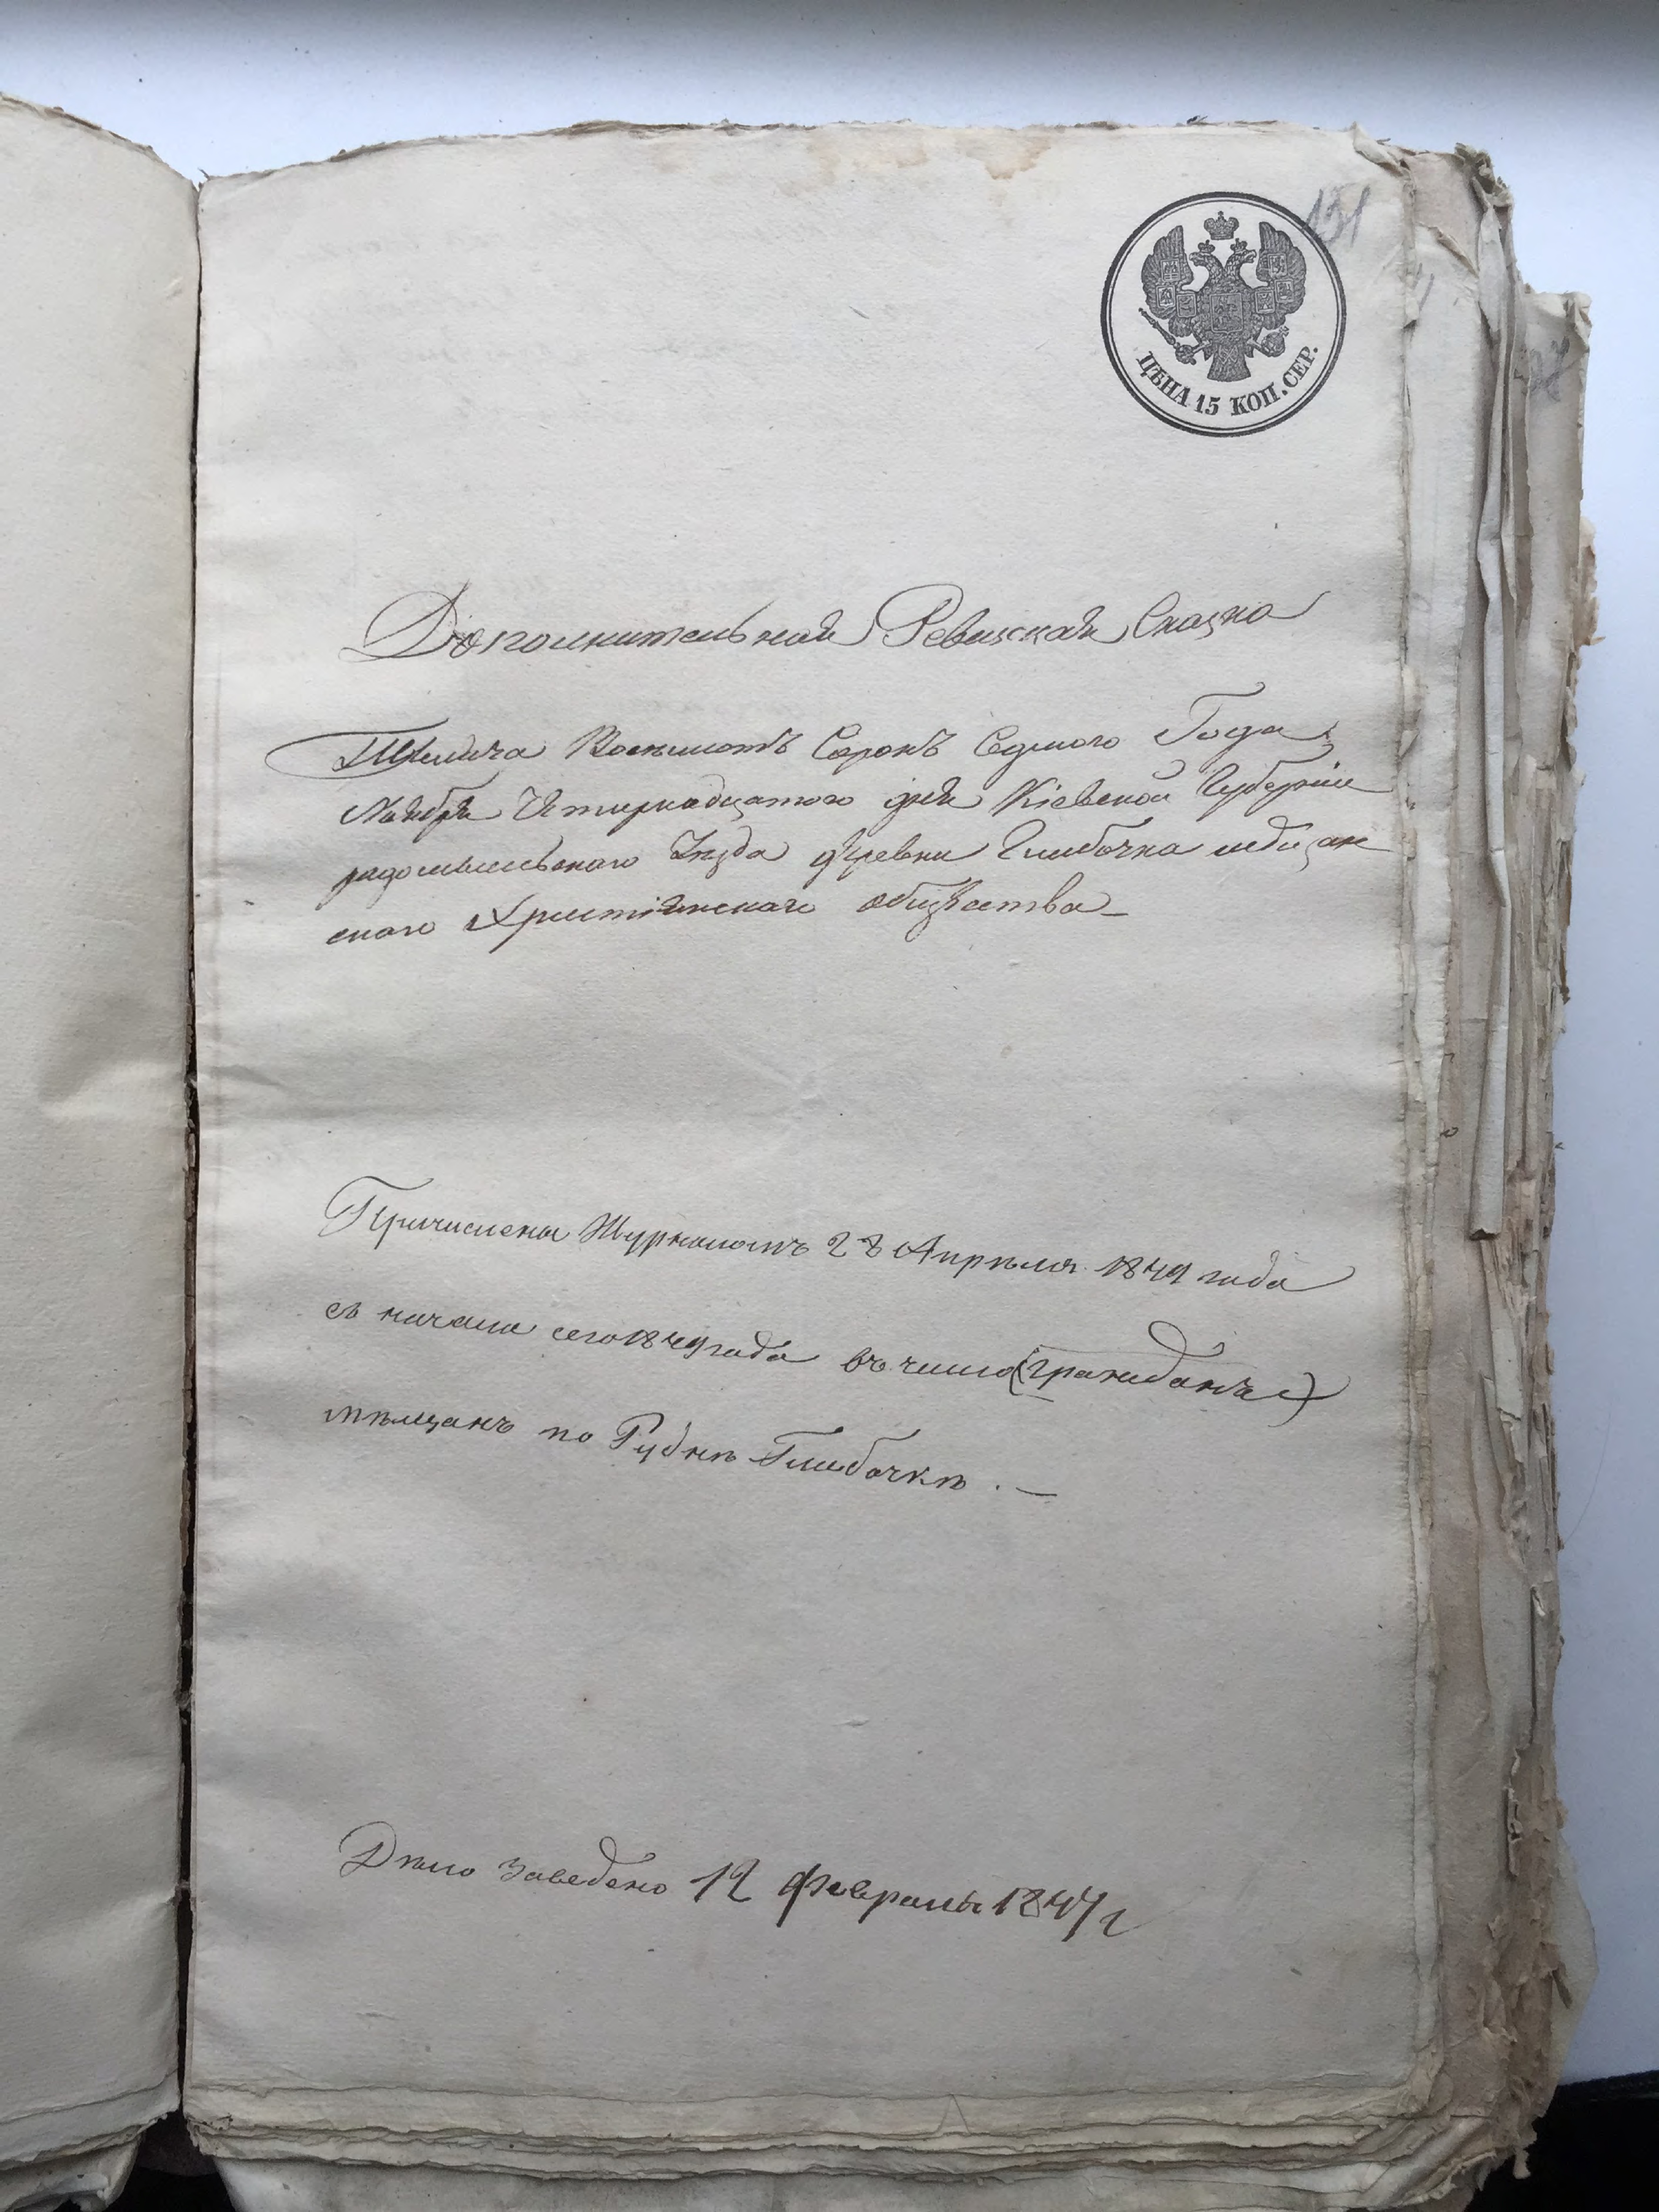 131
ЦѢНА 15 КОП. СЕР.
Дополнительная Ревизская Сказка
Тысяча Восемьсотъ Сорокъ Седмого Года
Ноября Четырнадцатого дня Кіевской Губерніи
радомысльского Уезда деревни Глибочка мѣщан
ского Християнскаго общества
Причислены Журналомъ 28 Апрѣля 1849 года
съ начала сего 1849 года въ число (гражданъ)
мѣщанъ по Рудкѣ Глибочкѣ. —
Дѣло заведено 12 февраля 1847 г